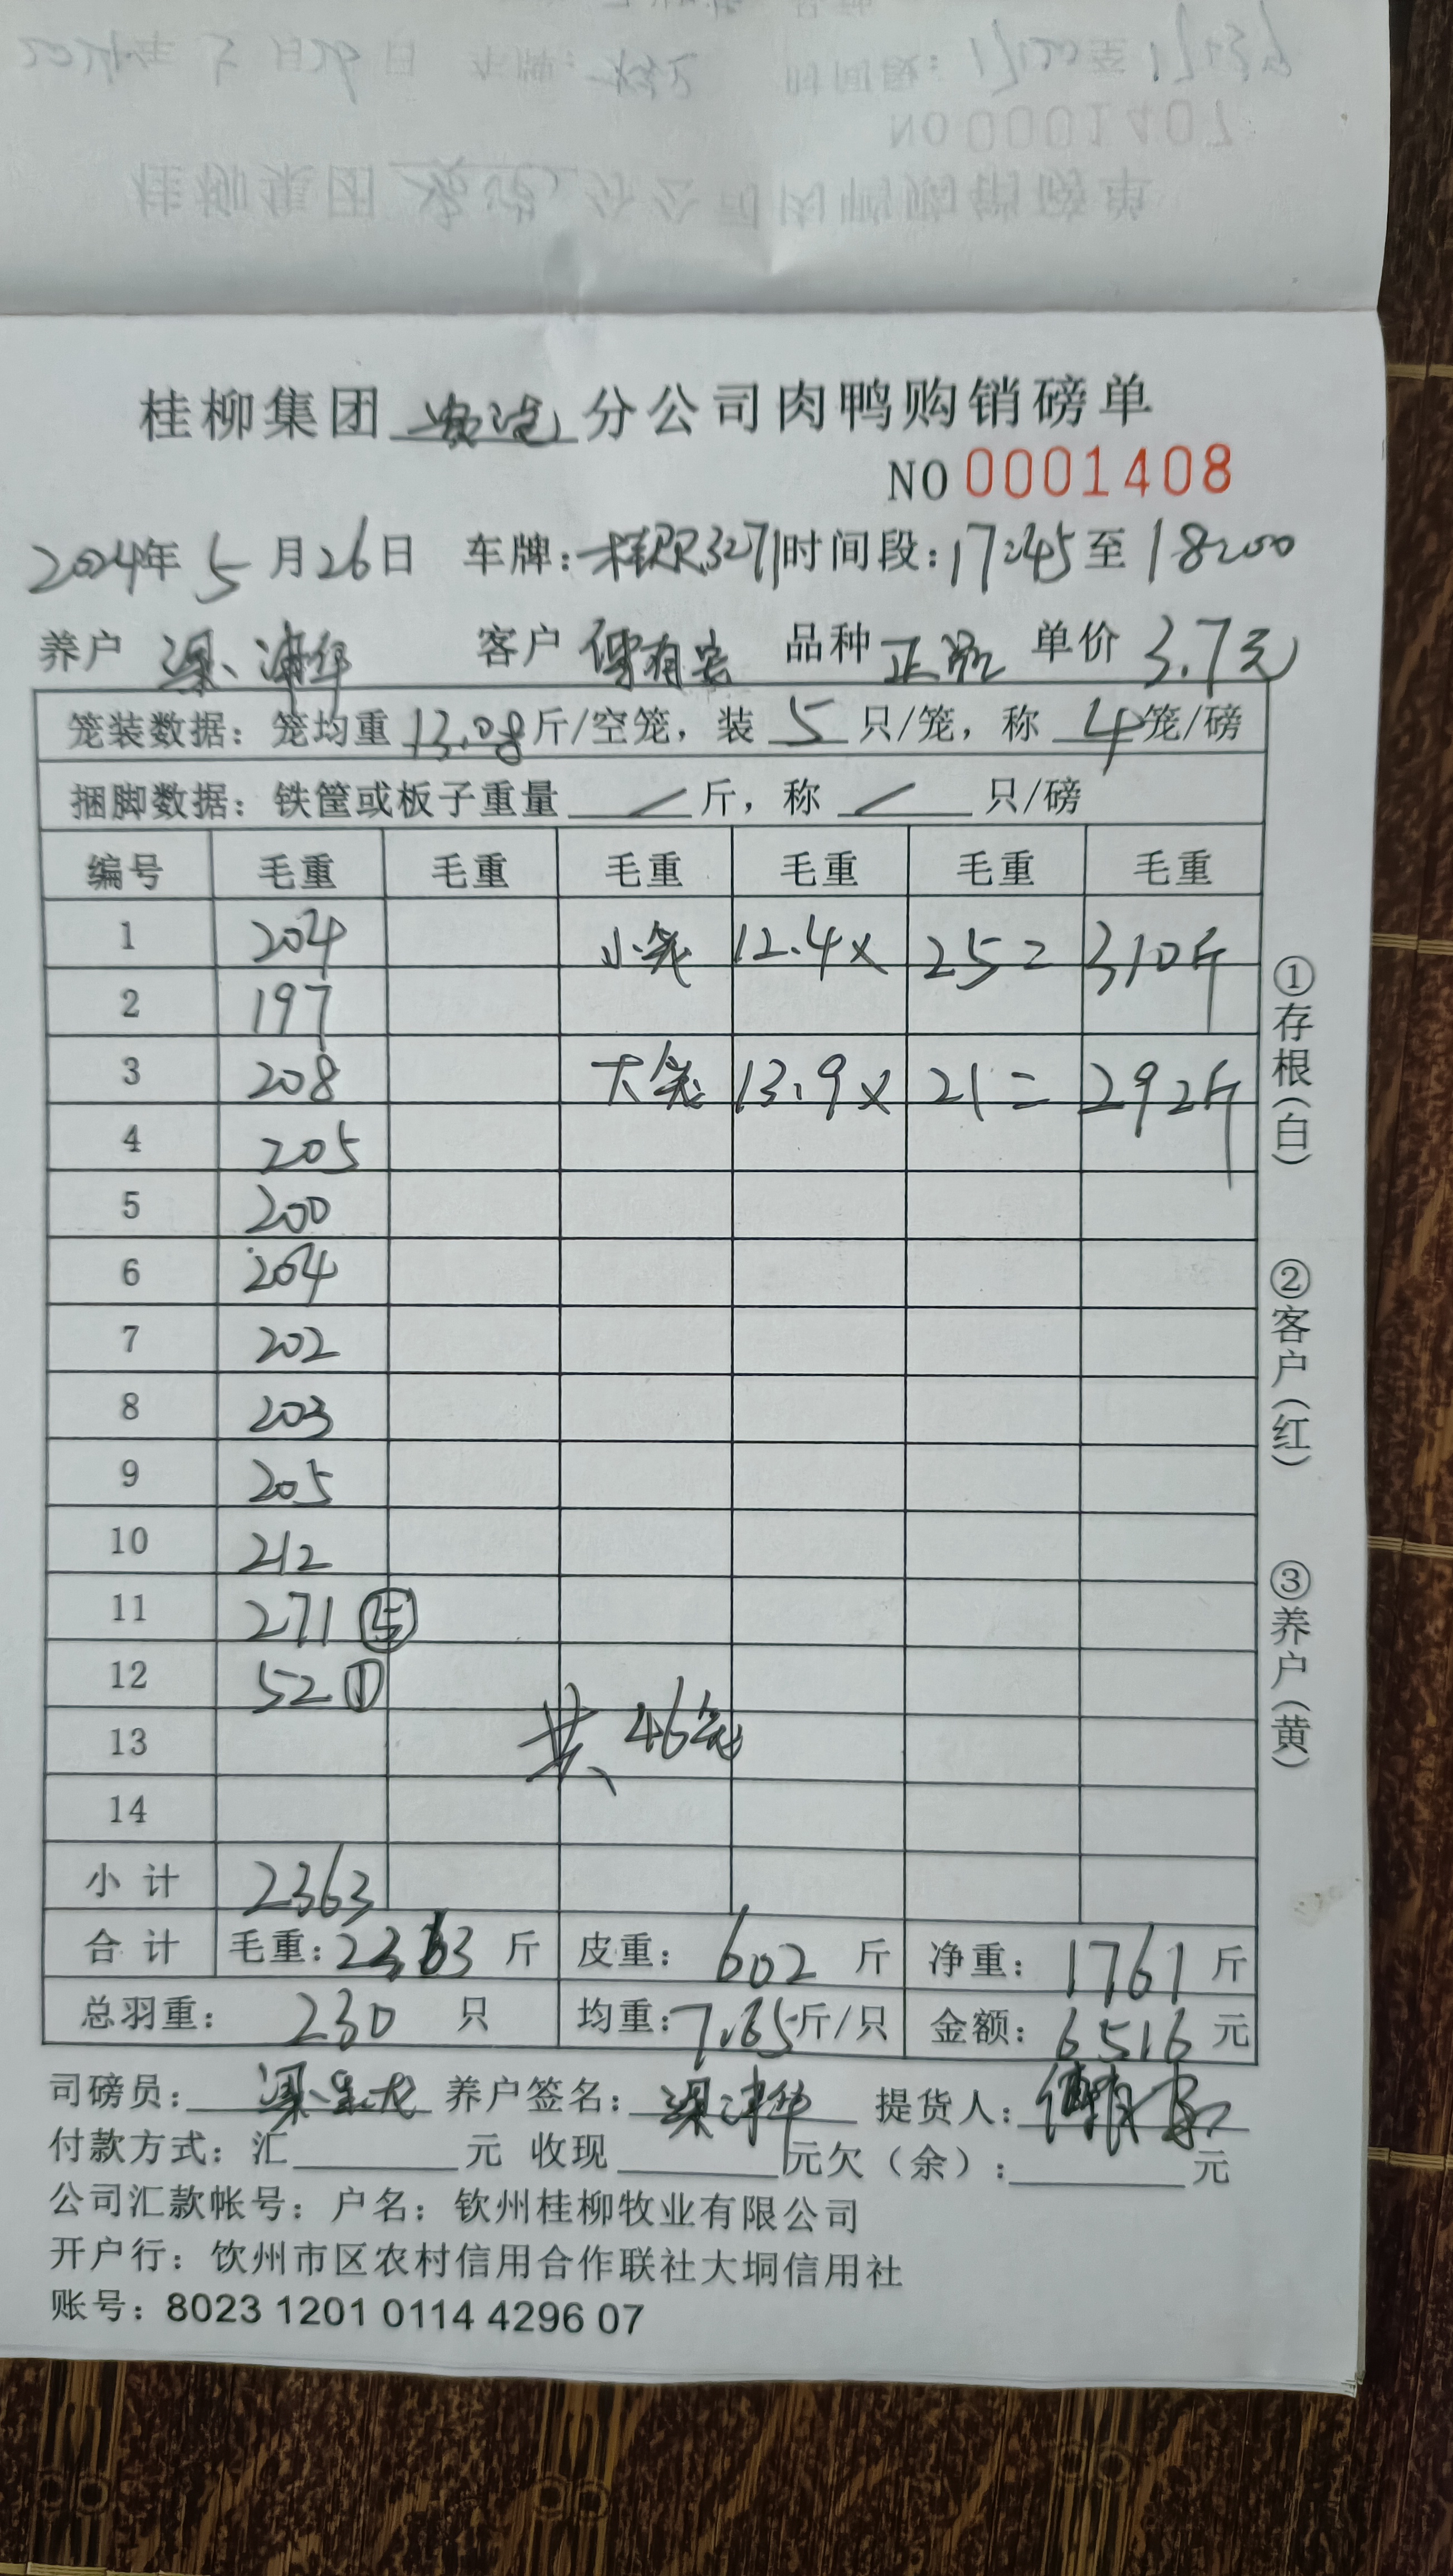 桂柳集团 分公司肉鸭购销磅单
NO 0001408
2024年 5 月 26 日 车牌: 3271 时间段: 17:45 至 18:00
养户 梁 华 客户 有 品种 正 单价 3.7元
笼装数据: 笼均重 13.08 斤/空笼, 装 5 只/笼, 称 4 笼/磅
捆脚数据: 铁筐或板子重量 / 斤, 称 / 只/磅
编号 毛重 毛重 毛重 毛重 毛重 毛重
1 204 小笼 12.4× 25= 310斤
2 197
3 208 大笼 13.9× 21= 292斤
4 205
5 200
6 204
7 202
8 203
9 205
10 212
11 271 ⑤
12 52 ①
13 共46笼
14
小计 2363
合计 毛重: 2363 斤 皮重: 602 斤 净重: 1761 斤
总羽重: 230 只 均重: 7.65 斤/只 金额: 6516 元
司磅员: 梁 龙 养户签名: 梁 华 提货人:
付款方式: 汇 元 收现 元欠(余): 元
公司汇款帐号: 户名: 钦州桂柳牧业有限公司
开户行: 饮州市区农村信用合作联社大垌信用社
账号: 8023 1201 0114 4296 07
①存根(白)
②客户(红)
③养户(黄)